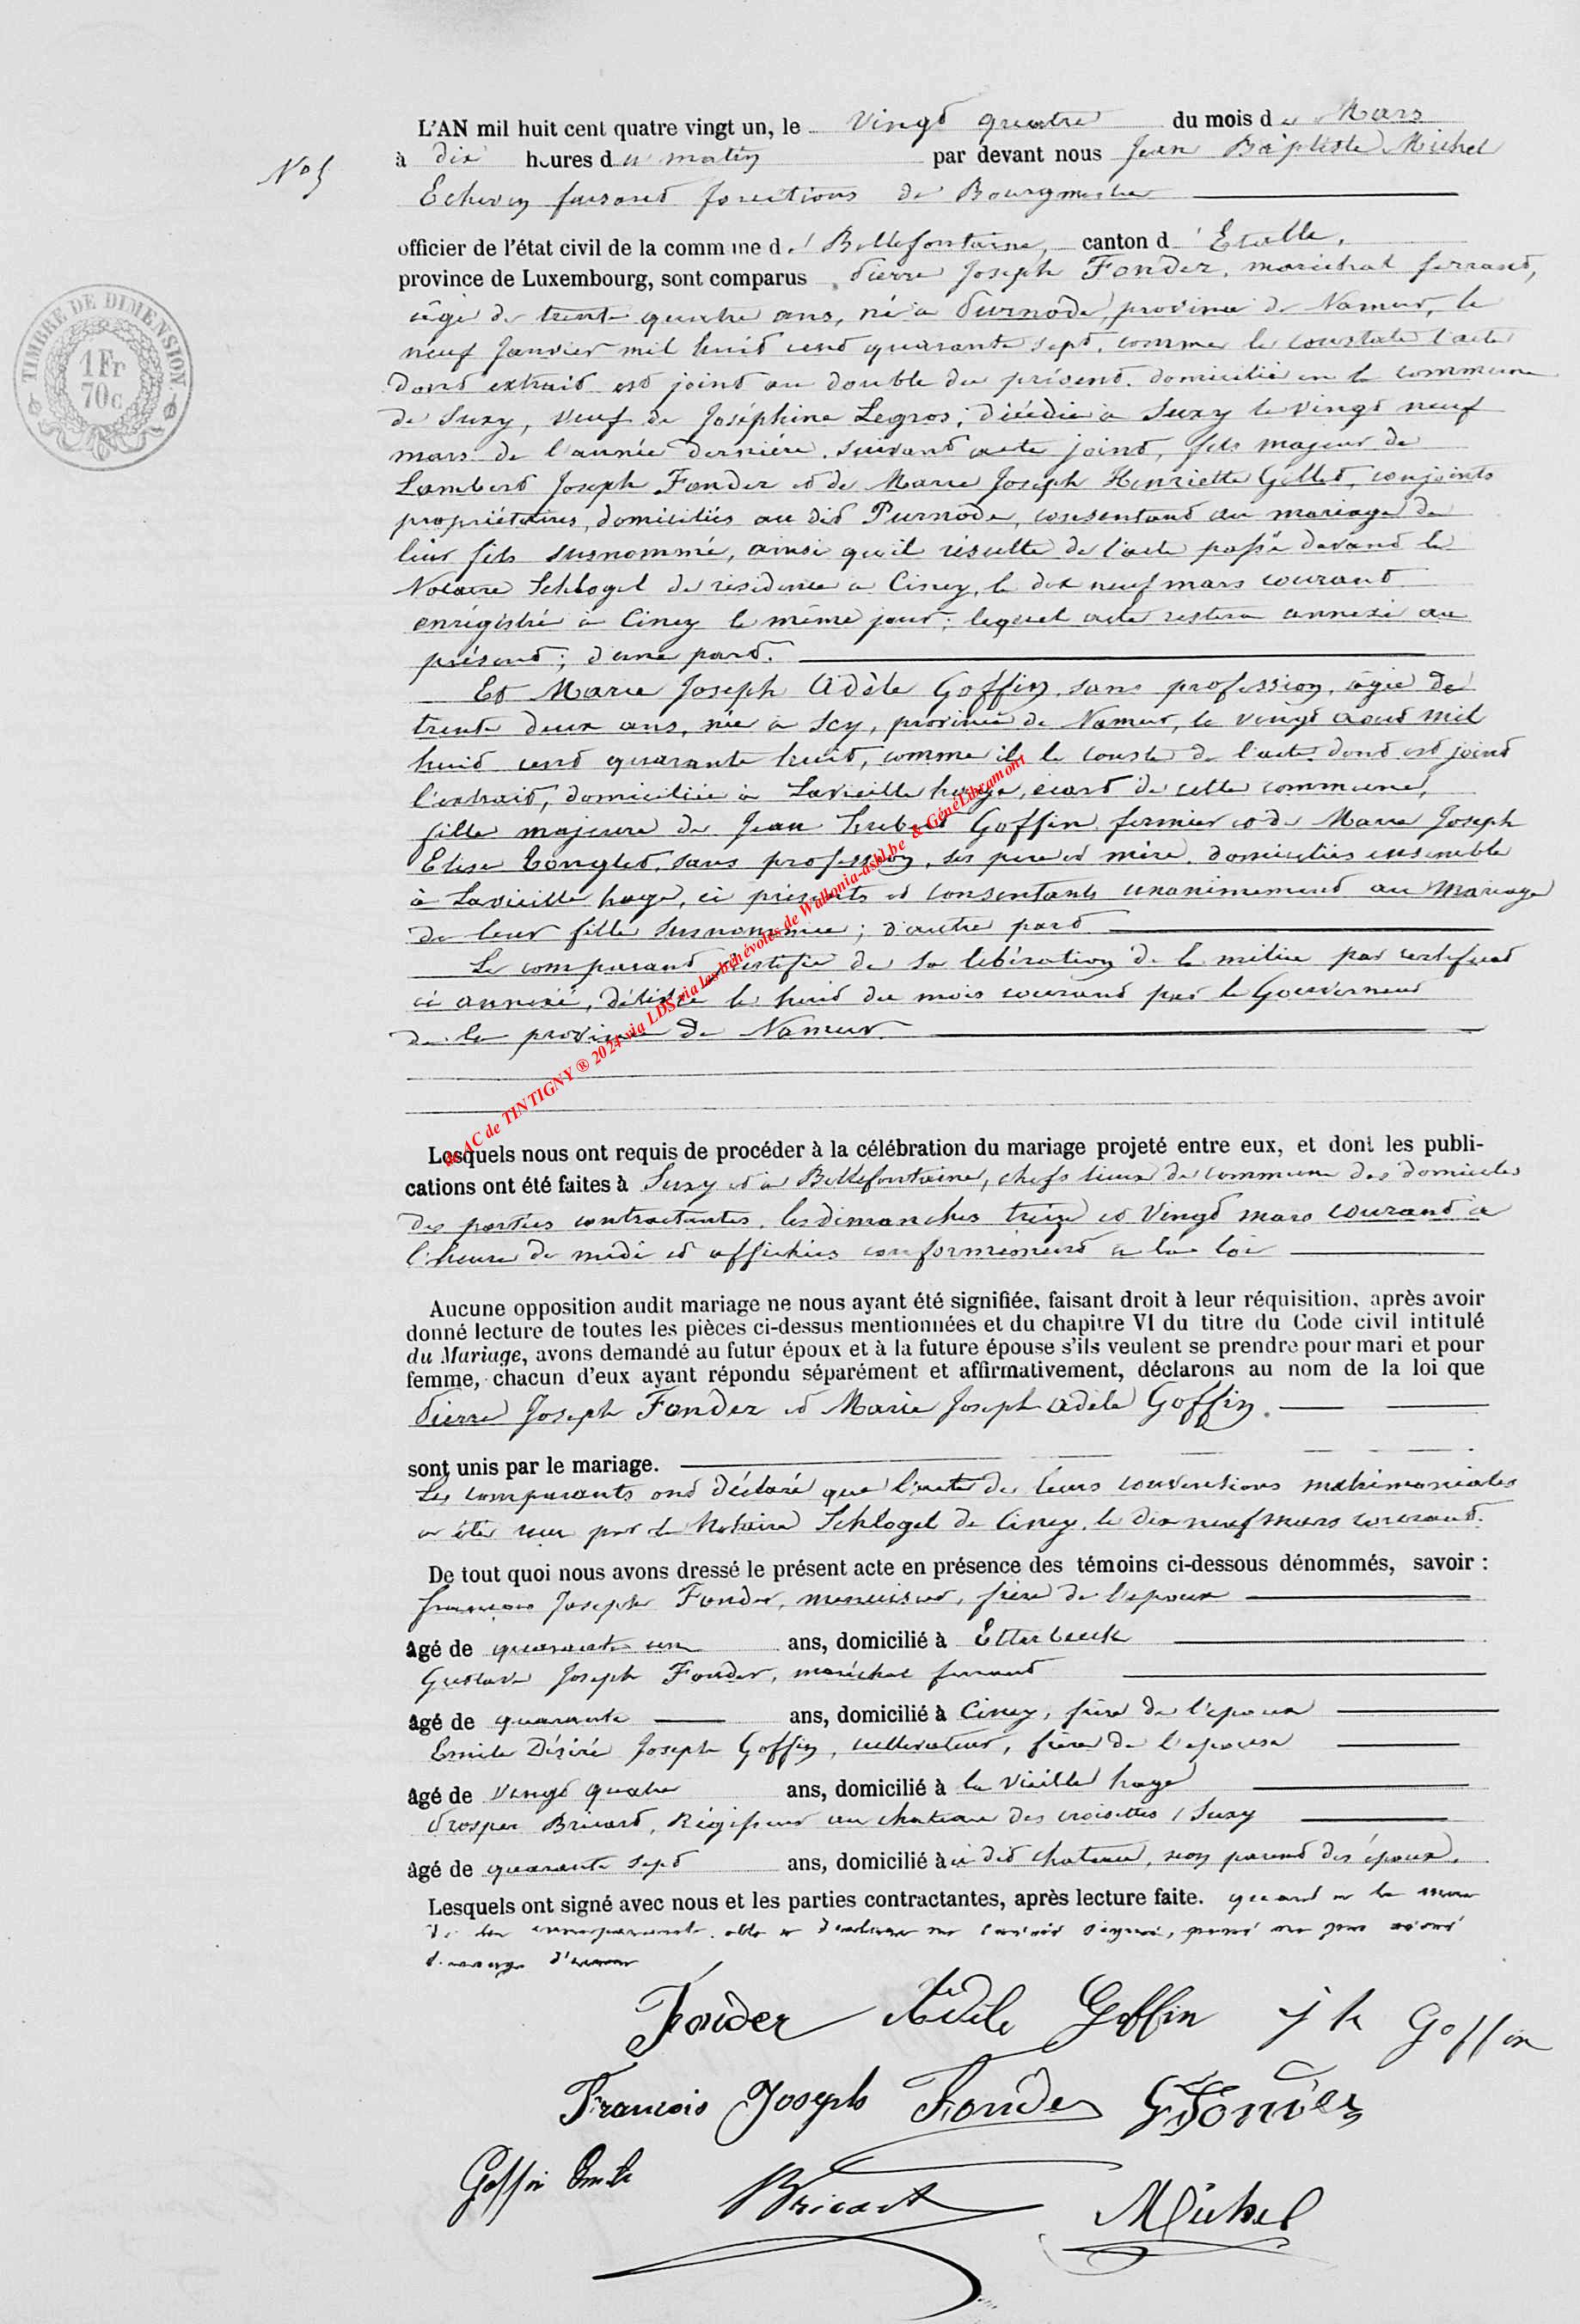 L'AN mil huit cent quatre vingt un, le vingt quatre du mois de Mars
N°5
à dix heures du matin par devant nous Jean Baptiste Michel
Echevin faisant fonctions de Bourgmestre
officier de l'état civil de la commune de Bellefontaine, canton d'Etalle,
province de Luxembourg, sont comparus Pierre Joseph Fonder, maréchal ferrant,
âgé de trente quatre ans, né à Purnode, province de Namur, le
neuf Janvier mil huit cent quarante sept, comme le constate l'acte
dont extrait est joint au double du présent, domicilié en la commune
de Suxy, veuf de Joséphine Legros, décédée à Suxy le vingt neuf
mars de l'année dernière, suivant acte joint, fils majeur de
Lambert Joseph Fonder et de Marie Joseph Henriette Gillet, conjoints
propriétaires, domiciliés au dit Purnode, consentant au mariage de
leur fils susnommé, ainsi qu'il résulte de l'acte passé devant le
Notaire Schlogel de résidence à Ciney, le dix neuf mars courant
enrégistré à Ciney le même jour; lequel acte restera annexé au
présent; d'une part.
Et Marie Joseph Adèle Goffin, sans profession, âgée de
trente deux ans, née à Scy, province de Namur, le vingt août mil
huit cent quarante huit, comme il le conste de l'acte dont est joint
l'extrait, domiciliée à Lavieille haye, écart de cette commune,
fille majeure de Jean Hubert Goffin fermier et de Marie Joseph
Elise Conglet, sans profession, ses père et mère, domiciliés ensemble
à Lavieille haye, ci présents et consentants unanimement au mariage
de leur fille susnommée; d'autre part
Le comparant justifie de sa libération de la milice par certificat
ci annexé, délivré le huit du mois courant par le Gouverneur
de la province de Namur.
de AC de TINTIGNY ® 2024 via LDS via les bénévoles de Wallonia-asbl.be & GénéLibramont
Lesquels nous ont requis de procéder à la célébration du mariage projeté entre eux, et dont les publi-
cations ont été faites à Suxy et à Bellefontaine, chefs lieux de commune des domiciles
des parties contractantes, les dimanches treize et vingt mars courant à
l'heure de midi et affichées conformément à la loi
Aucune opposition audit mariage ne nous ayant été signifiée, faisant droit à leur réquisition, après avoir
donné lecture de toutes les pièces ci-dessus mentionnées et du chapitre VI du titre du Code civil intitulé
du Mariage, avons demandé au futur époux et à la future épouse s'ils veulent se prendre pour mari et pour
femme, chacun d'eux ayant répondu séparément et affirmativement, déclarons au nom de la loi que
Pierre Joseph Fonder et Marie Joseph Adèle Goffin.
sont unis par le mariage.
Les comparants ont déclaré que l'acte de leurs conventions matrimoniales
a été reçu par le Notaire Schlogel de Ciney, le dix neuf mars courant.
De tout quoi nous avons dressé le présent acte en présence des témoins ci-dessous dénommés, savoir :
François Joseph Fonder, menuisier, frère de l'époux
âgé de quarante un ans, domicilié à Etterbeeck
Gustave Joseph Fonder, maréchal ferrant
âgé de quarante ans, domicilié à Ciney, frère de l'époux
Emile Désiré Joseph Goffin, cultivateur, frère de l'épouse
âgé de vingt quatre ans, domicilié à la Vieille haye
Prosper Bricart, Régisseur au chateau des croisettes / Suxy
âgé de quarante sept ans, domicilié à ce dit chateau, non parent des époux.
Lesquels ont signé avec nous et les parties contractantes, après lecture faite. quant à la mère
de la comparante, elle a déclaré ne savoir signer, pour ne pas avoir
Fonder Adèle Goffin j h Goffin
François Joseph Fonder G Fonder
Goffin Emile Bricart Michel
TIMBRE DE DIMENSION
1 Fr
70c